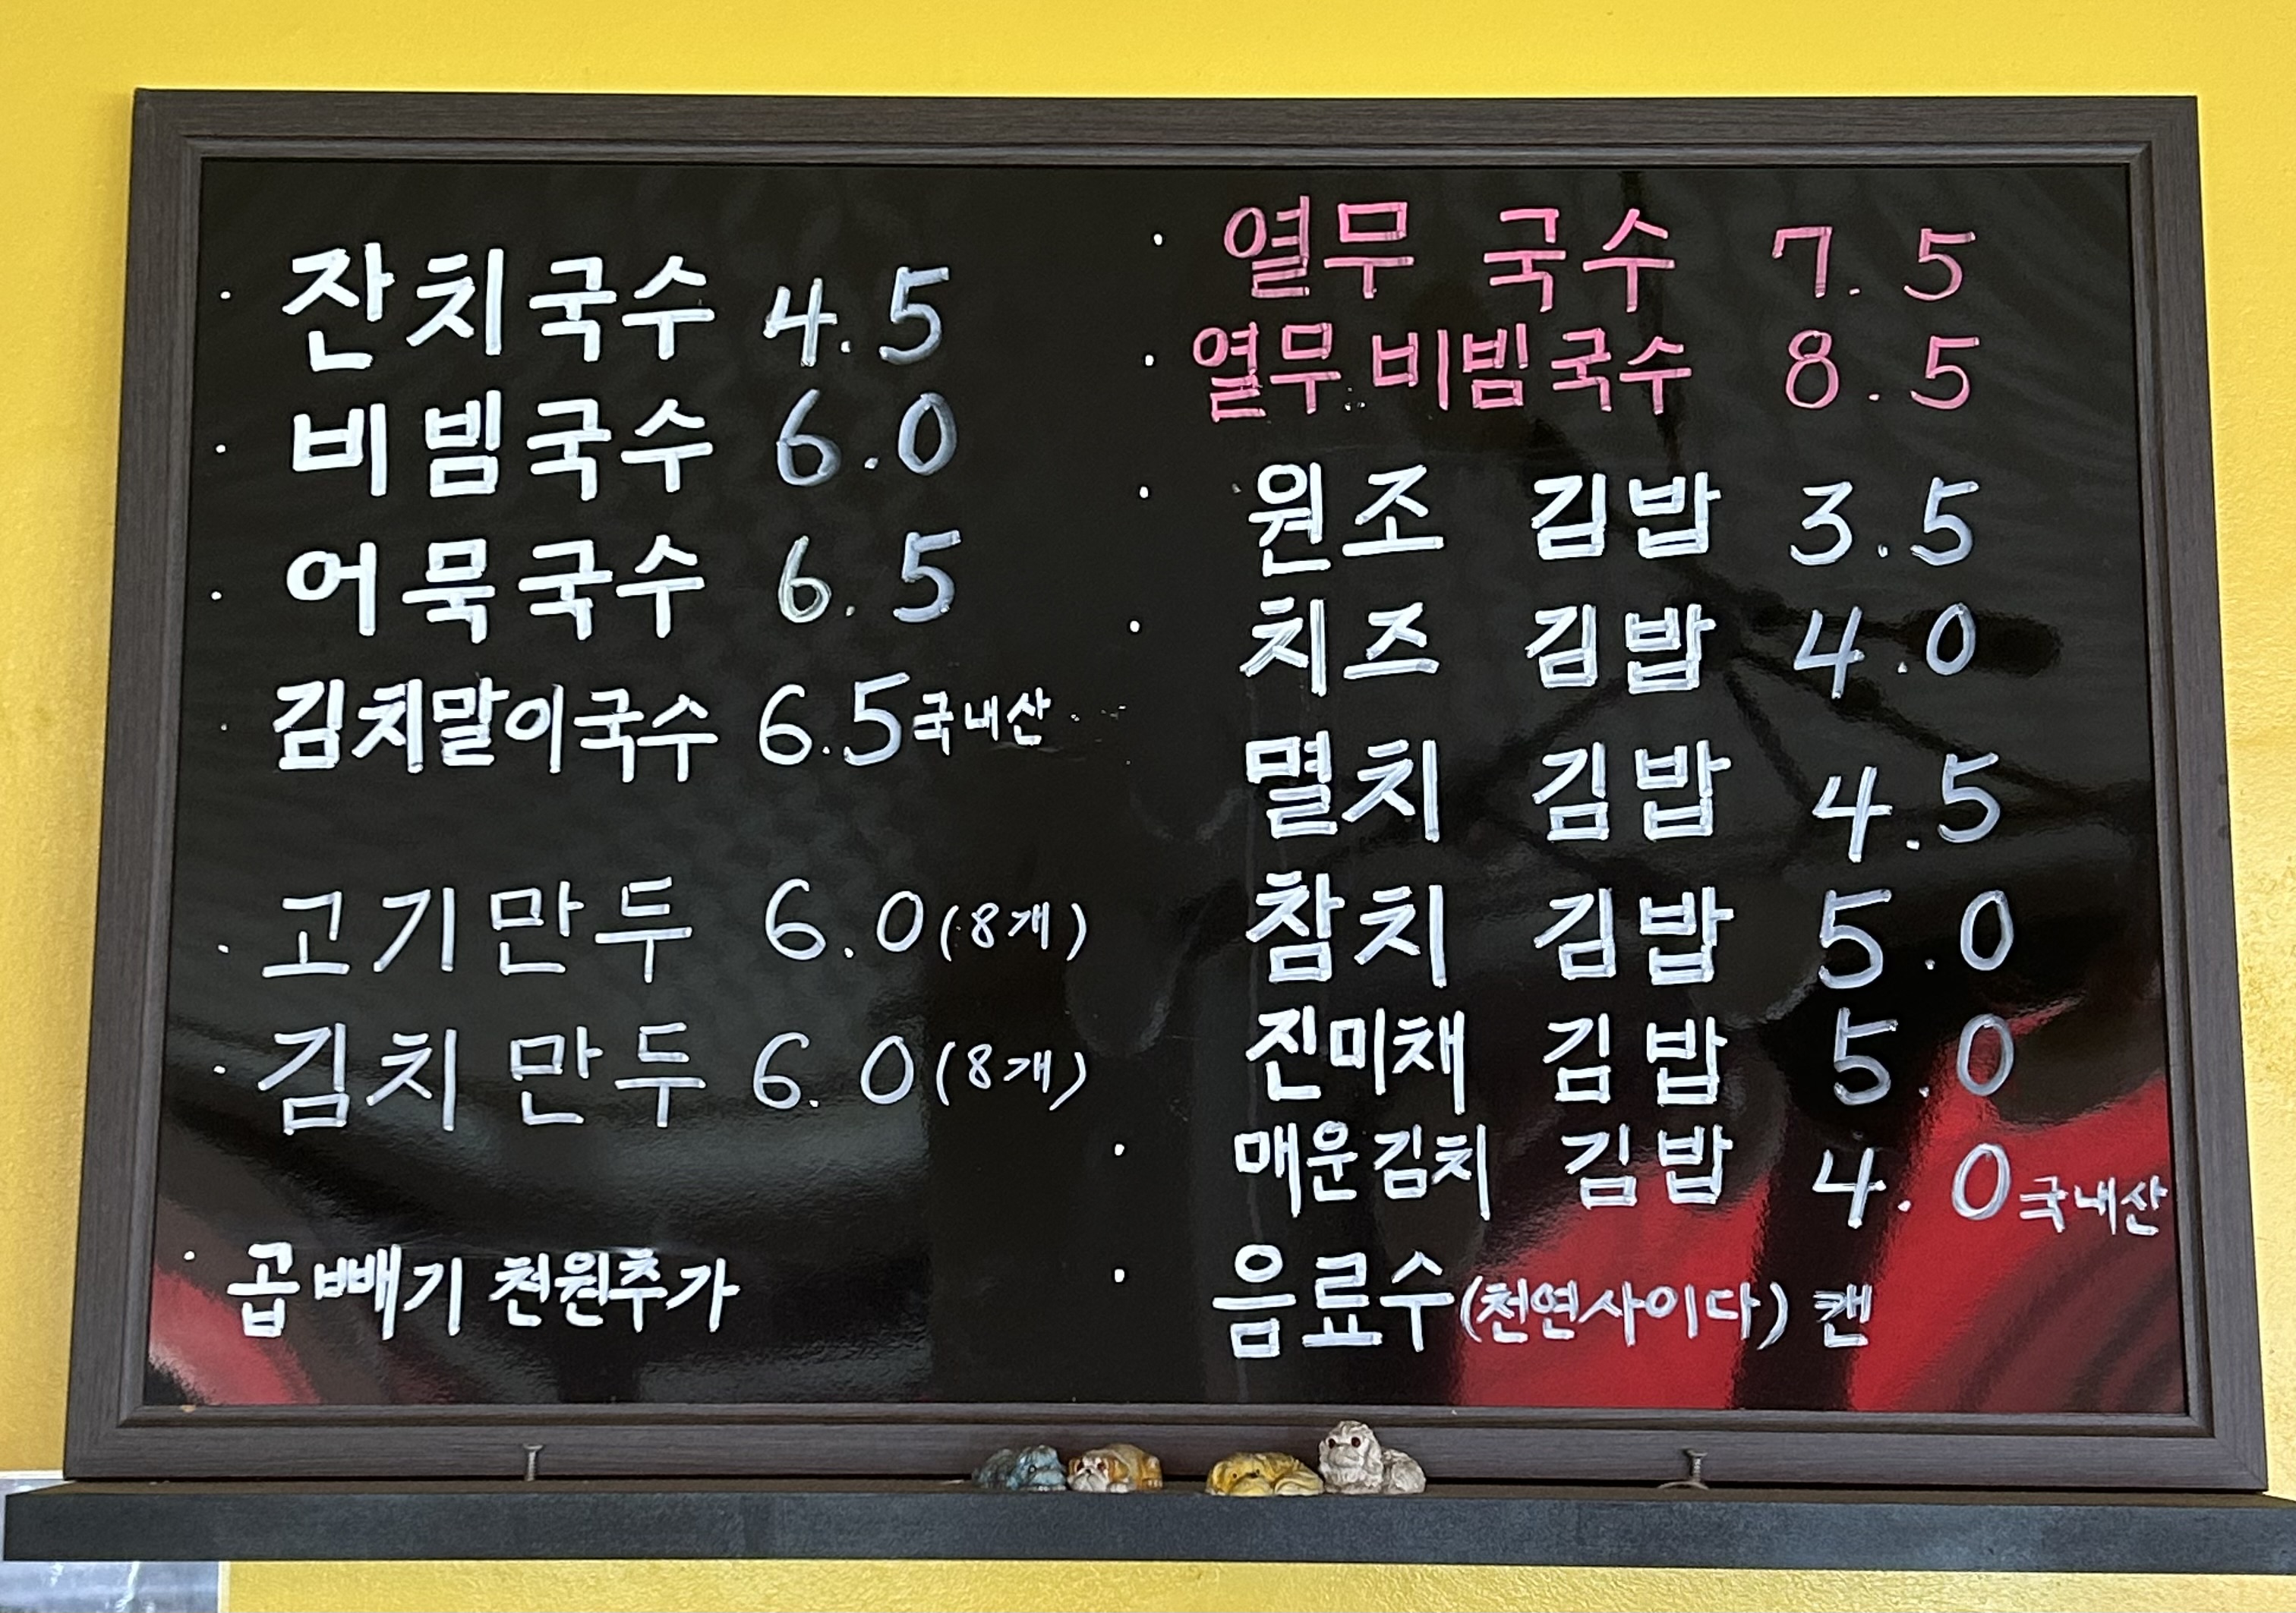 · 잔치국수 4.5
· 비빔국수 6.0
· 어묵국수 6.5
· 김치말이국수 6.5 국내산
· 고기만두 6.0 (8개)
· 김치만두 6.0 (8개)
· 곱빼기 천원추가
· 열무 국수 7.5
· 열무비빔국수 8.5
· 원조 김밥 3.5
· 치즈 김밥 4.0
멸치 김밥 4.5
참치 김밥 5.0
진미채 김밥 5.0
· 매운김치 김밥 4.0 국내산
· 음료수(천연사이다) 캔